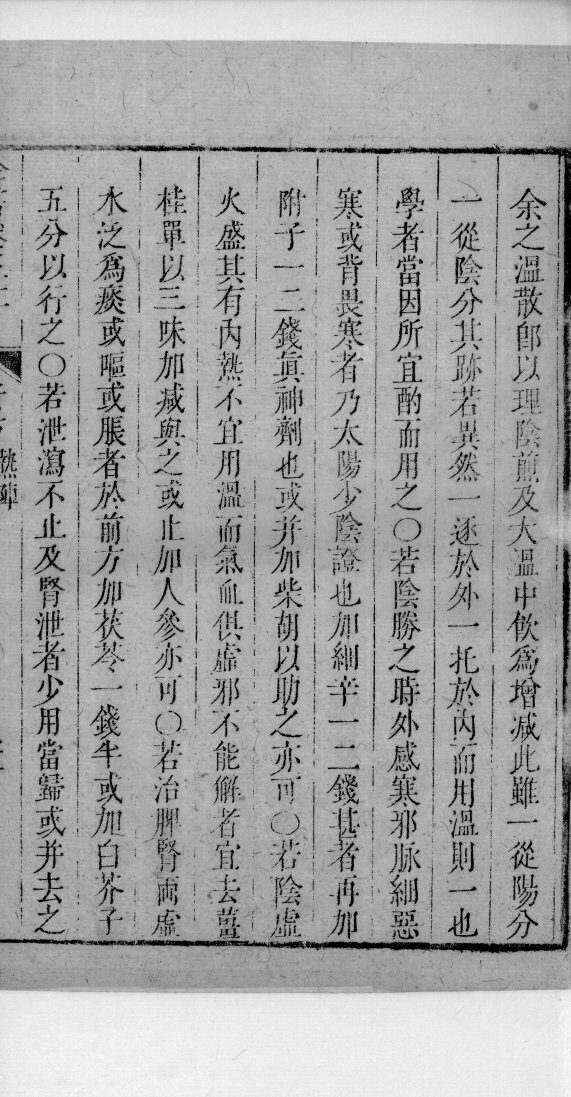 余之溫散卽以理陰煎及大溫中飲爲增減此雖一從陽分
一從陰分其跡若異然一逐於外一托於內而用溫則一也
學者當因所宜酌而用之○若陰勝之時外感寒邪脉細惡
寒或背畏寒者乃太陽少陰證也加細辛一二錢甚者再加
附子一二錢眞神劑也或并加柴胡以助之亦可○若陰虛
火盛其有內熱不宜用溫而氣血俱虛邪不能解者宜去薑
桂單以三味加減與之或止加人參亦可○若治脾腎兩虛
水泛爲痰或嘔或脹者於前方加茯苓一錢半或加白芥子
五分以行之○若泄瀉不止及腎泄者少用當歸或并去之
熱陣